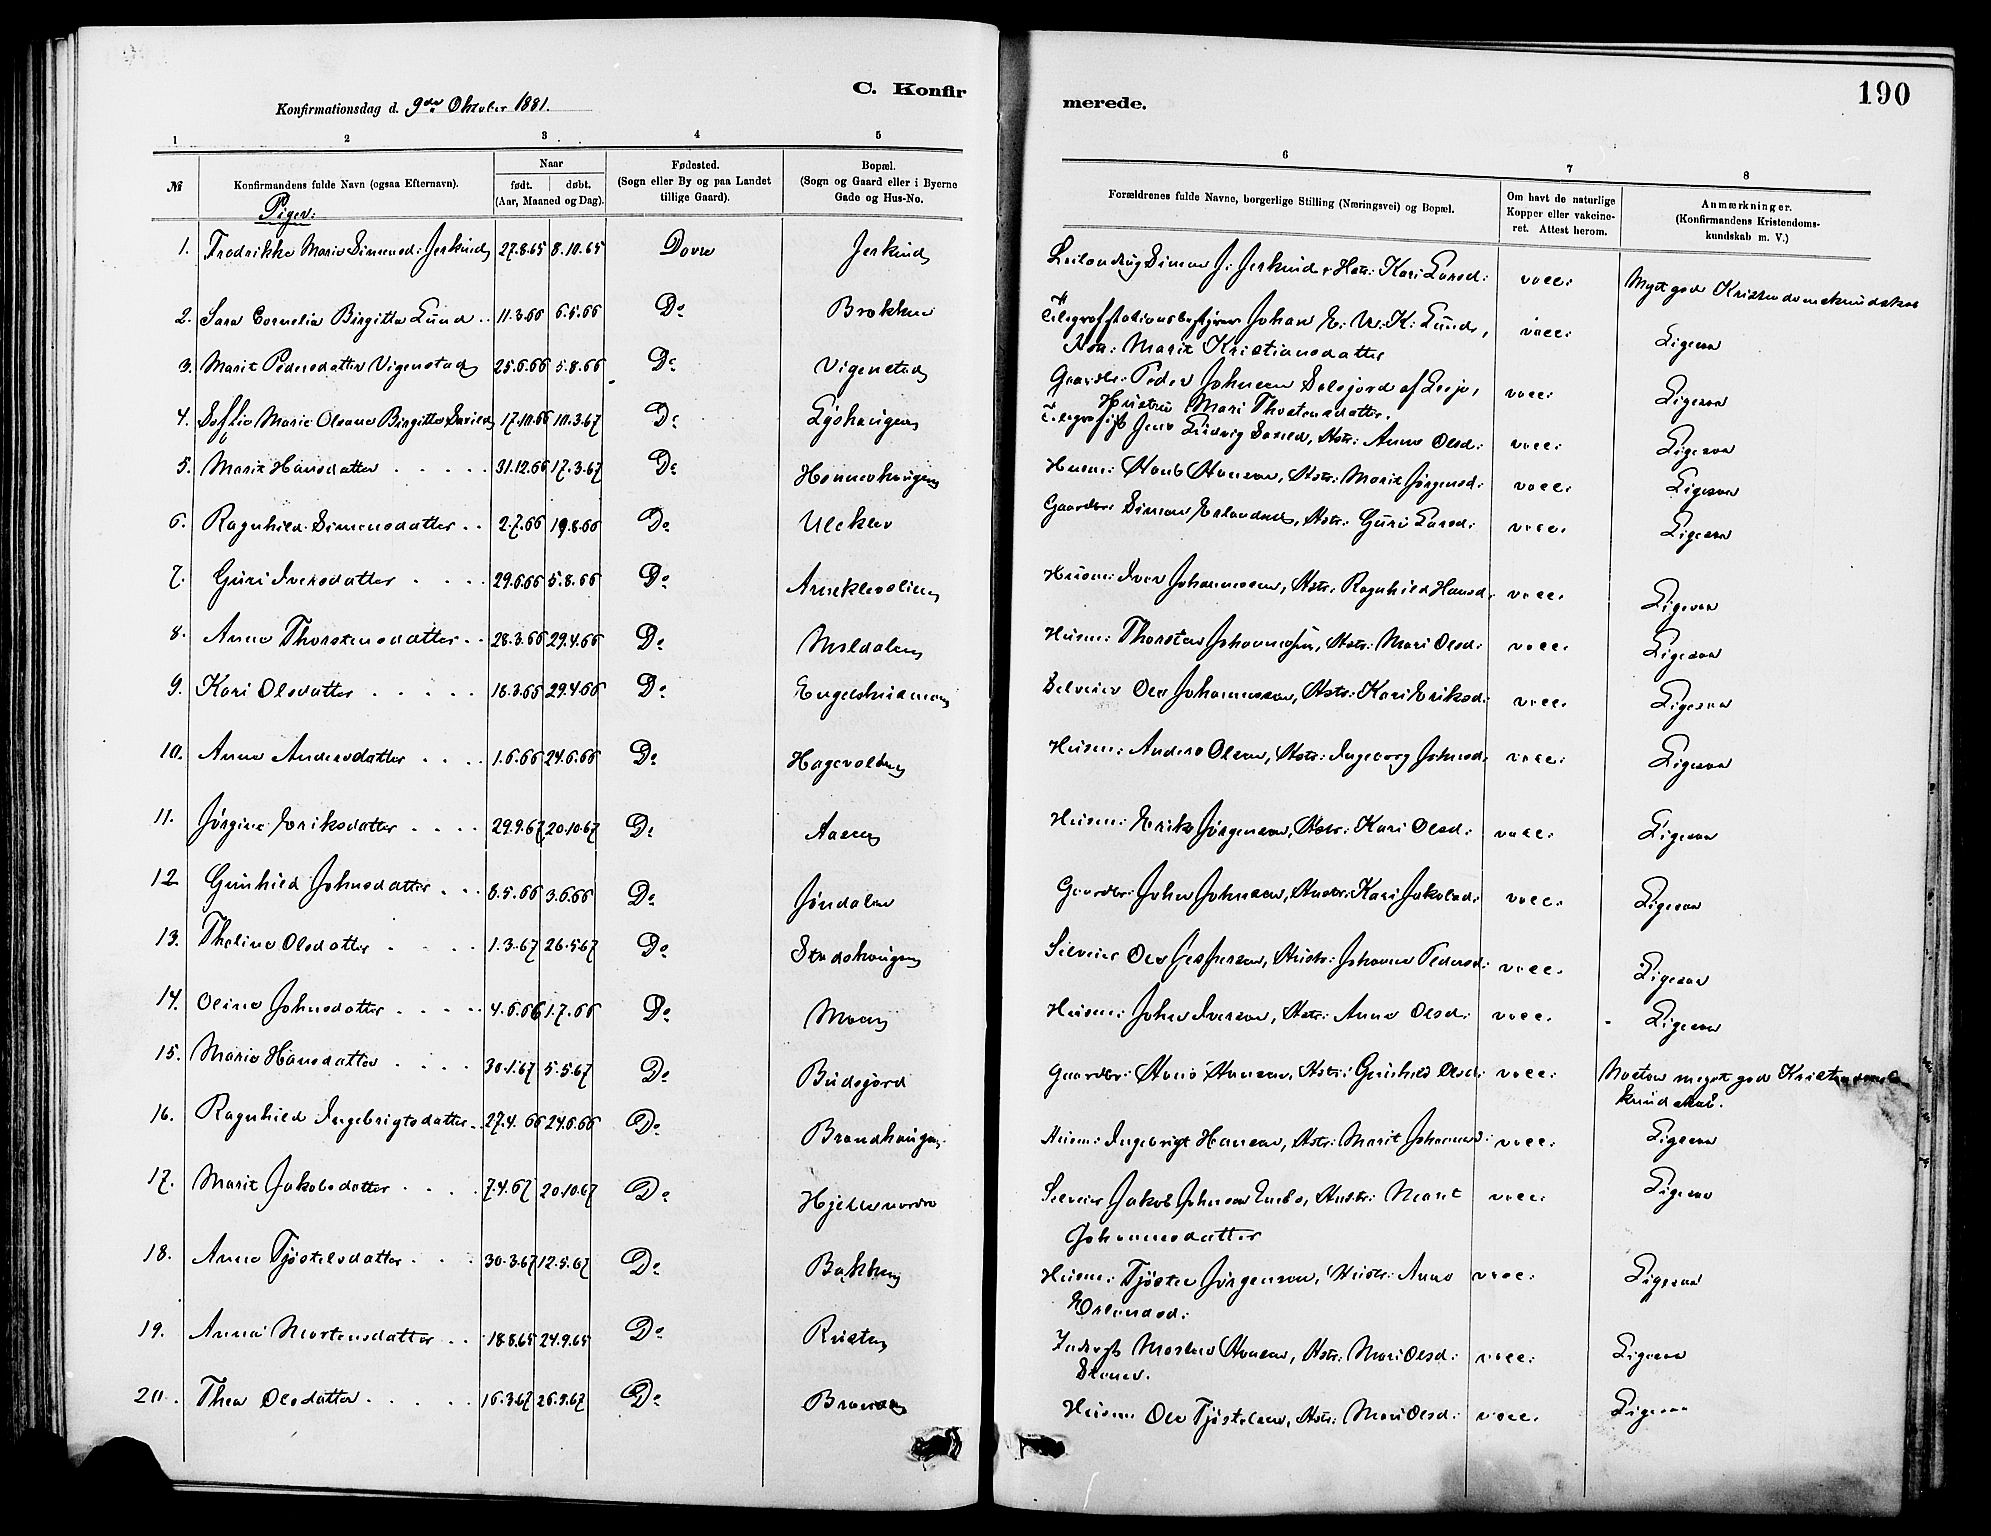 C. Konfir
merede.
190
Konfirmationsdag d. 9de Oktober 1881.
1 2 3 4 5
6 7 8
№
Konfirmandens fulde Navn (ogsaa Efternavn).
Naar
født. døbt.
(Aar, Maaned og Dag).
Fødested.
(Sogn eller By og paa Landet
tillige Gaard).
Bopæl.
(Sogn og Gaard eller i Byerne
Gade og Hus-No.
Forældrenes fulde Navne, borgerlige Stilling (Næringsvei) og Bopæl.
Om havt de naturlige
Kopper eller vakcine-
ret. Attest herom.
Anmærkninger.
(Konfirmandens Kristendoms-
kundskab m. V.)
Piger:
1. Fredrikke Marie Simensd: Jerkind 27.8.65 8.10.65 Dovre Jerkind Simen J. Jerkind Hstr: Kari Larsd: vacc: Myt god Kristendomskundskab
2. Sara Cornelia Birgitte Lund 11.3.66 6.5.66 Do Brakken Telegrafstationsbestyrer Johan E. W. K. Lund, vacc: Ligesaa
Hstr: Marit Kristiansdatter
3. Marit Pedersdatter Vigenstad 25.6.66 5.8.66 Do Vigenstad Gaardbr: Peder Johnsen Selsjord af Lesje, vacc: Ligesaa
Hustru Mari Thostensdatter.
4. Soffie Marie Oleane Birgitte 17.10.66 10.3.67 Do Lyshaugen Telegrafist Jens Ludvig Hstr: Anne Olsd: vacc: Ligesaa
5. Marit Hansdatter 31.12.66 17.3.67 Do Husm: Hans Hansen, Hstr: Marit Jørgensd: vacc: Ligesaa
6. Ragnhild Simensdatter 2.7.66 19.8.66 Do Uleklev Gaardbr: Simen Erlandsen, Hstr: Guri Larsd: vacc: Ligesaa
7. Guri Iversdatter 29.6.66 5.8.66 Do Arneklevslien Husm: Iver Johannessen, Hstr: Ragnhild Hansd: vacc: Ligesaa
8. Anne Thorstensdatter 28.3.66 29.4.66 Do Moldalen Husm: Thorsten Johannesen, Hstr: Mari Olsd: vacc: Ligesaa
9. Kari Olsdatter 18.3.66 29.4.66 Do Engelshusmoen Selveier Ole Johannessen, Hstr: Kari Eriksd: vacc: Ligesaa
10. Anne Andersdatter 1.6.66 24.6.66 Do Hagevolden Husm: Anders Olsen, Hstr: Ingeborg Johnsd: vacc: Ligesaa
11. Jørgine Eriksdatter 29.9.67 20.10.67 Do Aaen Husm: Erik Jørgensen, Hstr: Kari Olsd: vacc: Ligesaa
12. Gunhild Johnsdatter 8.5.66 3.6.66 Do Jøndalen Gaardbr: John Johnsen, Hustr: Kari Jakobsd: vacc: Ligesaa
13. Theline Olsdatter 1.3.67 26.5.67 Do Stadshaugen Selveier Ole Jespersen, Hustr: Johanne Pedersd: vacc: Ligesaa
14. Oline Johnsdatter 4.6.66 1.7.66 Do Moen Husm: John Iversen, Hstr: Anne Olsd: vacc. Ligesaa
15. Marie Hansdatter 30.1.67 5.5.67 Do Budsjord Gaardbr: Hans Hansen, Hstr: Gunhild Olsd: vacc: Næsten meget god Kristendoms
kundskab.
16. Ragnhild Ingebrigtsdatter 27.4.66 24.6.66 Do Brandhaugen Husm: Ingebrigt Hansen, Hstr: Marit Johannesd: vacc: Ligesaa
17. Marit Jakobsdatter 7.4.67 20.10.67 Do Hjelle nordre Selveier Jakob Johnsen Hustr: Marit vacc: Ligesaa
Johannesdatter
18. Anne Tjøstelsdatter 30.3.67 12.5.67 Do Bakken Husm: Tjøstel Jørgensen, Hustr: Anne vacc: Ligesaa
Erlandsd:
19. Anne Mortensdatter 18.8.65 24.9.65 Do Rusten Inderst Morten Hansen, Hstr: Mari Olsd: vacc: Ligesaa
20. Thea Olsdatter 16.3.67 26.5.67 Do Husm: Ole Tjøstelsen, Hstr: Mari Olsd: vacc: Ligesaa